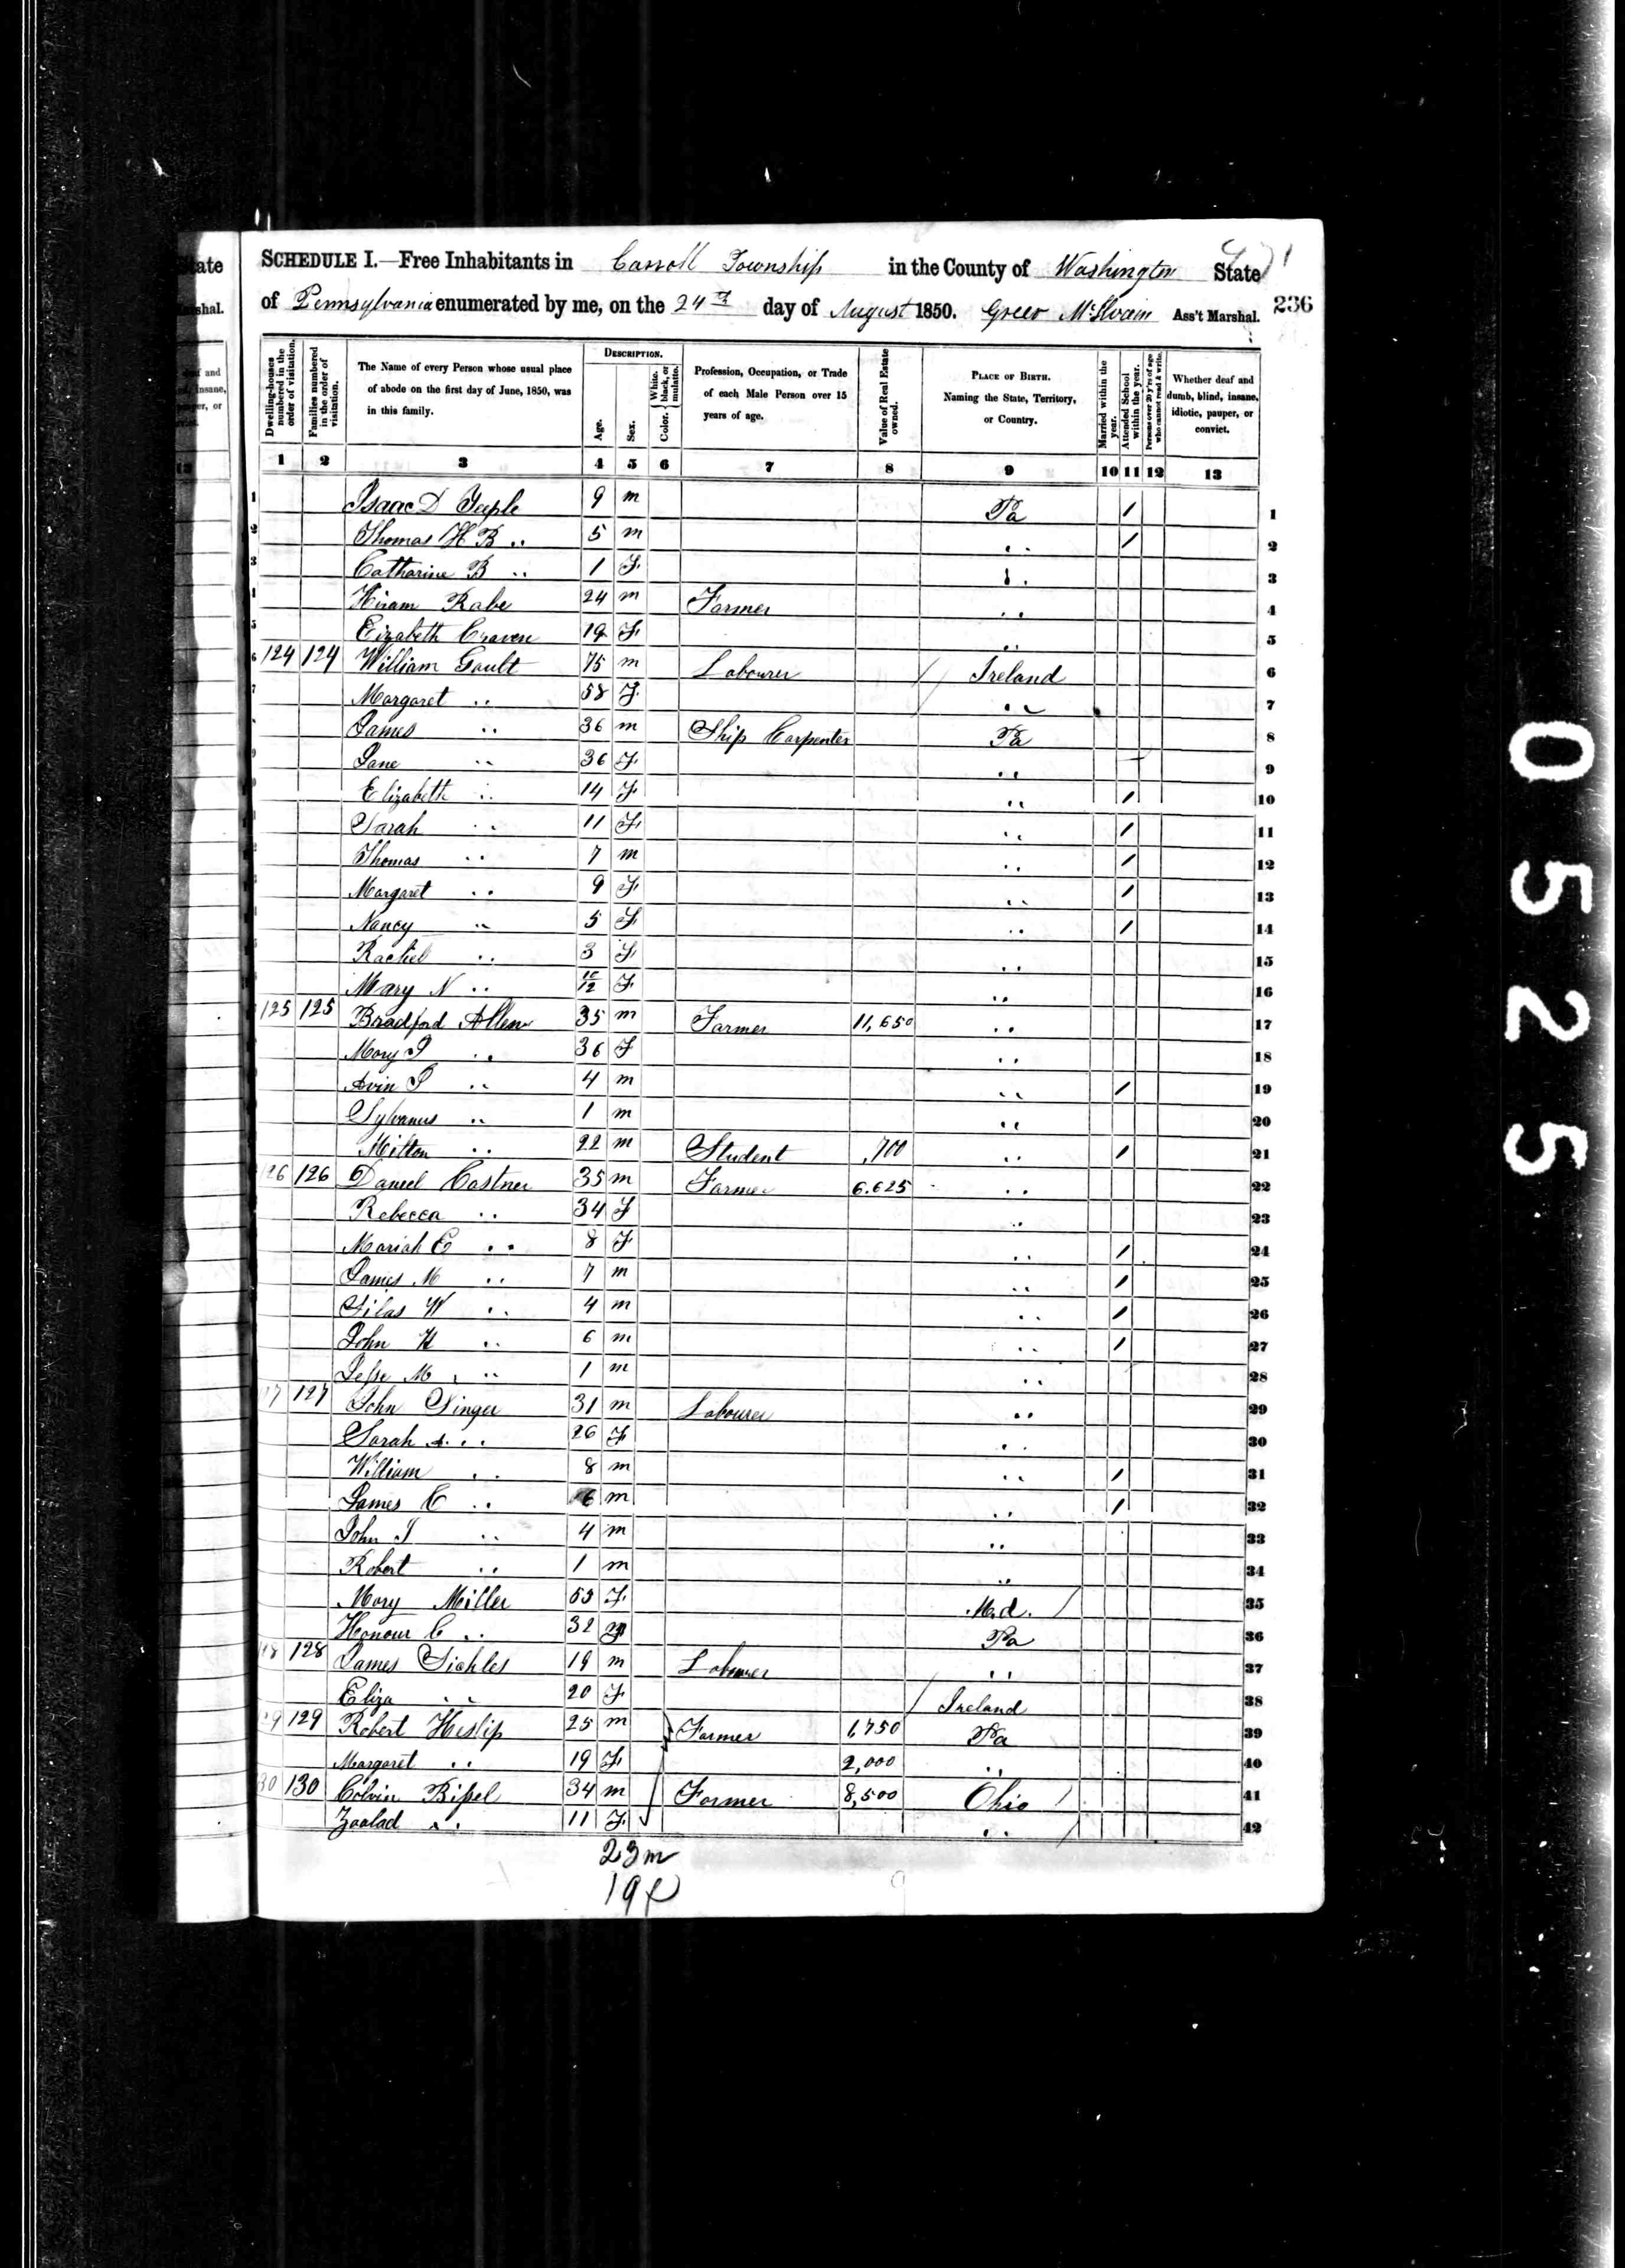 State
SCHEDULE I.—Free Inhabitants in Carroll Township in the County of Washington State
of Pennsylvania enumerated by me, on the 24th day of August 1850. Greer McIlvain Ass't Marshal. 236
Dwelling-houses numbered in the order of visitation.
Families numbered in the order of visitation.
The Name of every Person whose usual place of abode on the first day of June, 1850, was in this family.
DESCRIPTION.
Age.
Sex.
Color. White, black, or mulatto.
Profession, Occupation, or Trade of each Male Person over 15 years of age.
Value of Real Estate owned.
PLACE OF BIRTH. Naming the State, Territory, or Country.
Married within the year.
Attended School within the year.
Persons over 20 y'rs of age who cannot read & write.
Whether deaf and dumb, blind, insane, idiotic, pauper, or convict.
1 2 3 4 5 6 7 8 9 10 11 12 13
1 Isaac D Teeple 9 m Pa / 1
2 Thomas H B .. 5 m .. / 2
3 Catharine B .. 1 F .. 3
Hiram Rabe 24 m Farmer .. 4
5 Eizabeth Craven 19 F .. 5
6 124 124 William Gault 75 m Labourer / Ireland 6
7 Margaret .. 58 F .. 7
James .. 36 m Ship Carpenter Pa 8
9 Jane .. 36 F .. 9
Elizabeth .. 14 F .. / 10
Sarah .. 11 F .. / 11
Thomas .. 7 m .. / 12
Margaret .. 9 F .. / 13
Nancy .. 5 F .. / 14
Rachel .. 3 F .. 15
Mary N .. 10/12 F .. 16
125 125 Bradford Allen 35 m Farmer 11,650 .. 17
Mary J .. 36 F .. 18
Avin P .. 4 m .. / 19
Sylvanus .. 1 m .. 20
Milton .. 22 m Student ,700 .. / 21
26 126 Daniel Castner 35 m Farmer 6.625 .. 22
Rebecca .. 34 F .. 23
Mariah E .. 8 F .. / 24
James M .. 7 m .. / 25
Silas W .. 4 m .. / 26
John H .. 6 m .. / 27
Jesse M .. 1 m .. 28
7 127 John Singer 31 m Labourer .. 29
Sarah A .. 26 F .. 30
William .. 8 m .. / 31
James C .. 6 m .. / 32
John J .. 4 m .. 33
Robert .. 1 m .. 34
Mary Miller 53 F Md. / 35
Honour C .. 32 Pa 36
8 128 James Sickles 19 m Labourer .. 37
Eliza .. 20 F / Ireland 38
9 129 Robert Heslip 25 m Farmer 1,750 Pa 39
Margaret .. 19 F 2,000 .. 40
30 130 Colvin Bissel 34 m Farmer 8,500 Ohio / 41
Zaalad .. 11 F .. / 42
23 m
19 f
0525